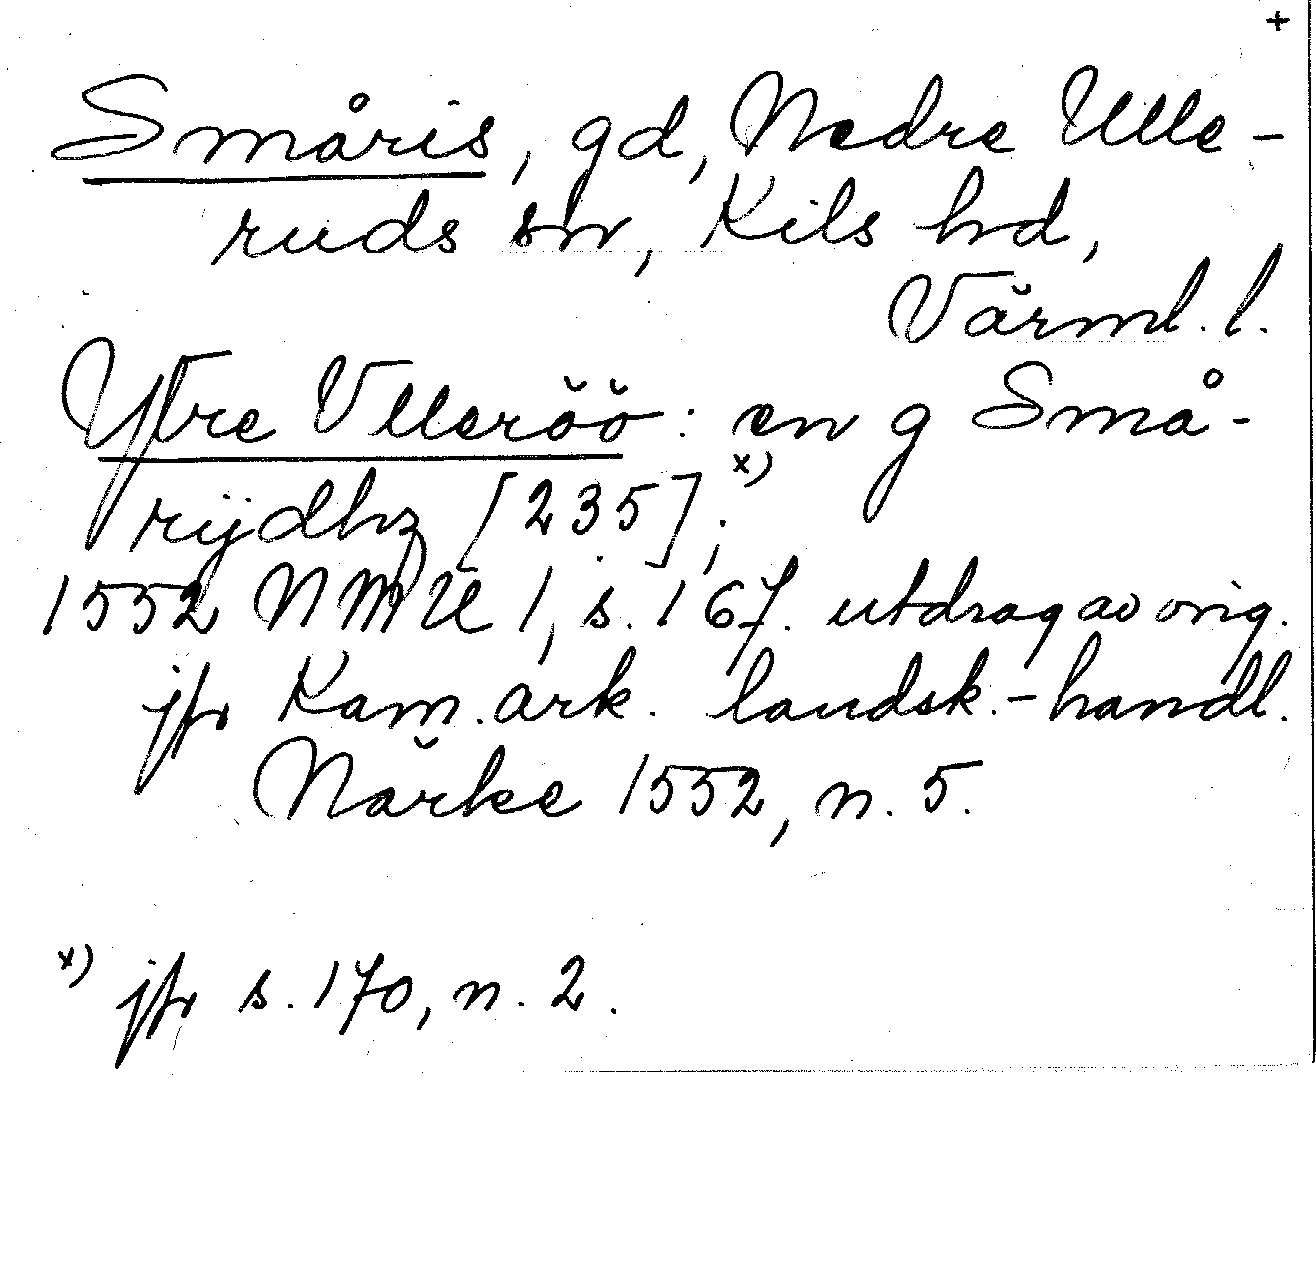 +
Småris, gd, Nedre Ulle-
ruds sn, Kils hd,
Värml. l.
Ytre Vlleröö: en g Små-
rÿdhz [235];x)
1552 NMU 1, s. 167. utdrag av orig.
jfr Kam. ark. landsk.-handl.
Närke 1552, n. 5.
x) jfr s. 170, n. 2.